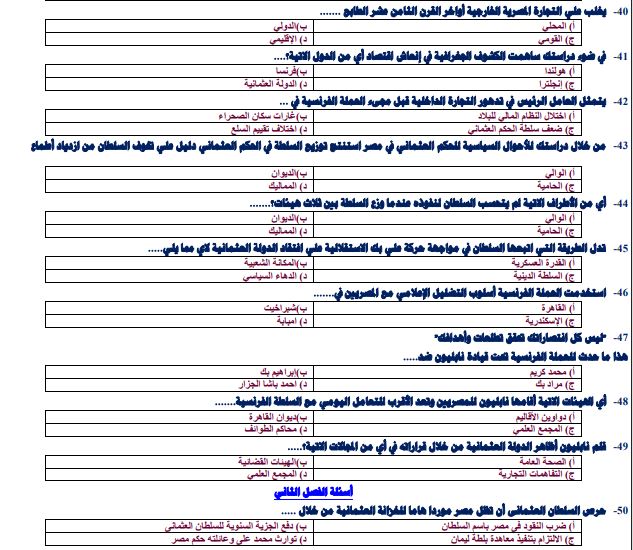 40- يغلب علي التجارة المصرية الخارجية أواخر القرن الثامن عشر الطابع .......
أ) المحلي ب)الدولي
ج) القومي د) الإقليمي
41- في ضوء دراستك ساهمت الكشوف الجغرافية في إنعاش اقتصاد أي من الدول الاتية؟....
أ) هولندا ب)فرنسا
ج) إنجلترا د) الدولة العثمانية
42- يتمثل العامل الرئيس في تدهور التجارة الداخلية قبل مجىء الحملة الفرنسية في ...
أ) اختلال النظام المالي للبلاد ب)غارات سكان الصحراء
ج) ضعف سلطة الحكم العثماني د) اختلاف تقييم السلع
43- من خلال دراستك للأحوال السياسية للحكم العثماني في مصر استنتج توزيع السلطة في الحكم العثماني دليل علي تخوف السلطان من ازدياد أطماع
أ) الوالي ب)الديوان
ج) الحامية د) المماليك
44- أي من الأطراف الاتية لم يتحسب السلطان لنفوذه عندما وزع السلطة بين ثلاث هيئات؟.......
أ) الوالي ب)الديوان
ج) الحامية د) المماليك
45- تدل الطريقة التي اتبعها السلطان في مواجهة حركة علي بك الاستقلالية علي افتقاد الدولة العثمانية لاي مما يلي.....
أ) القدرة العسكرية ب)المكانة الشعبية
ج) السلطة الدينية د) الدهاء السياسي
46- استخدمت الحملة الفرنسية أسلوب التضليل الإعلامي مع المصريين في.......
أ) القاهرة ب)شبراخيت
ج) الإسكندرية د) امبابة
47- "ليس كل انتصاراتك تحقق تطلعات وأهدافك"
هذا ما حدث للحملة الفرنسية تحت قيادة نابليون ضد.....
أ) محمد كريم ب)إبراهيم بك
ج) مراد بك د) احمد باشا الجزار
48- أي الهيئات الاتية أقامها نابليون للمصريين وتعد الأقرب للتعامل اليومي مع السلطة الفرنسية.......
أ) دواوين الأقاليم ب)ديوان القاهرة
ج) المجمع العلمي د) محاكم الطوائف
49- قلم نابليون أظافر الدولة العثمانية من خلال قراراته في أي من المجالات الاتية؟.....
أ) الصحة العامة ب)الهيئات القضائية
ج) التفاهمات التجارية د) المجمع العلمي
أسئلة الفصل الثاني
50- حرص السلطان العثماني أن تظل مصر موردا هاما للخزانة العثمانية من خلال .....
أ) ضرب النقود في مصر باسم السلطان ب) دفع الجزية السنوية للسلطان العثماني
ج) الالتزام بتنفيذ معاهدة بلطة ليمان د) توارث محمد علي وعائلته حكم مصر